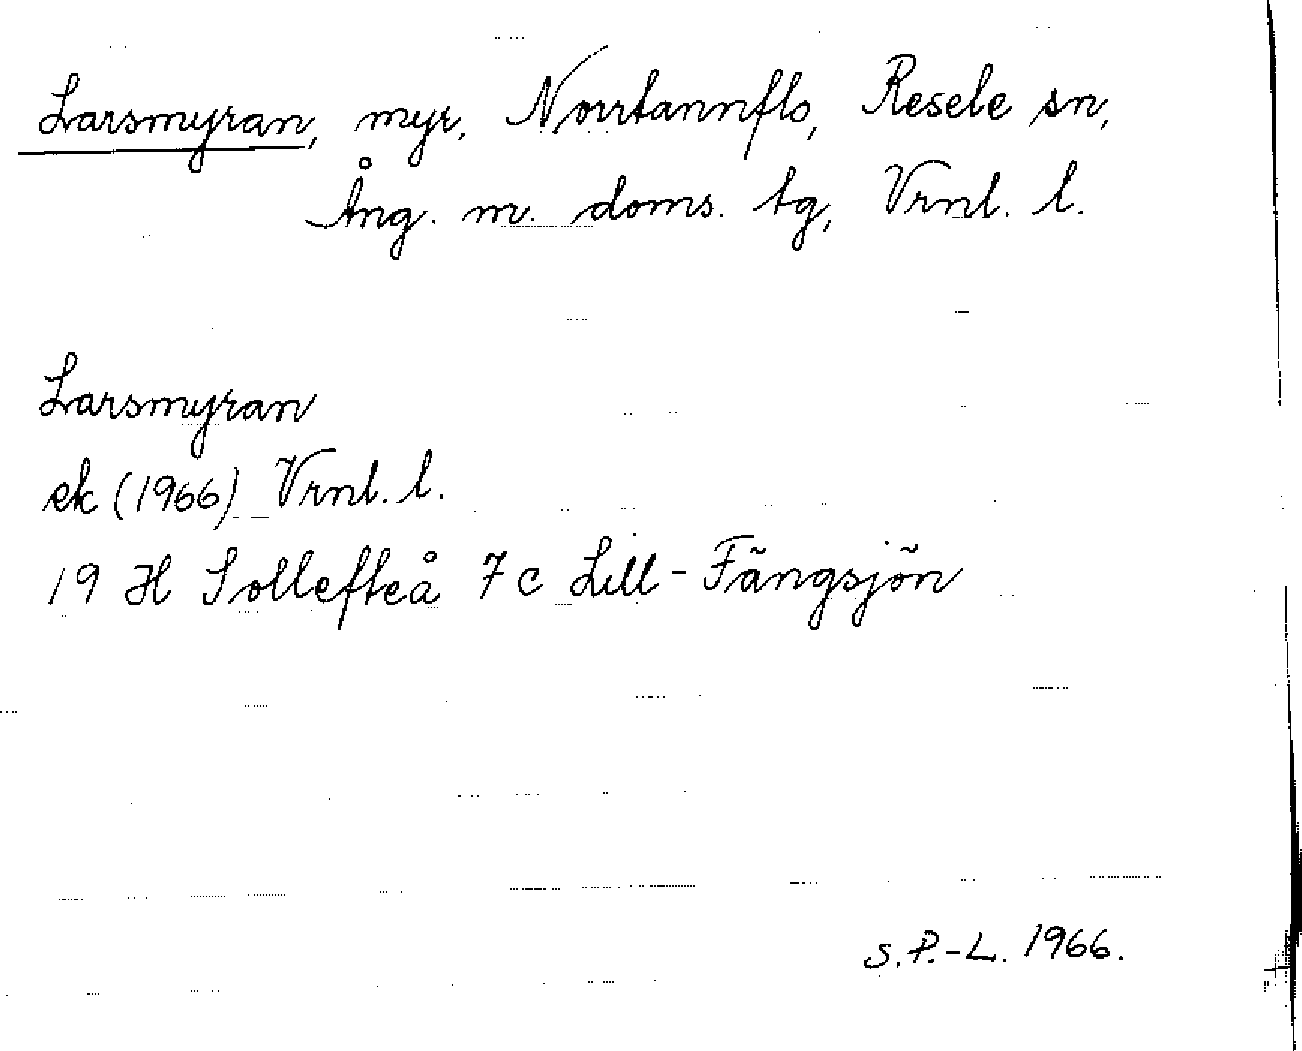 Larsmyran, myr, Norrtannflo, Resele sn,
Ång. m. doms. tg, Vrnl. l.
Larsmyran
ek (1966) Vrnl. l.
19 H Sollefteå 7 c Lill-Fängsjön
S.P.-L. 1966.